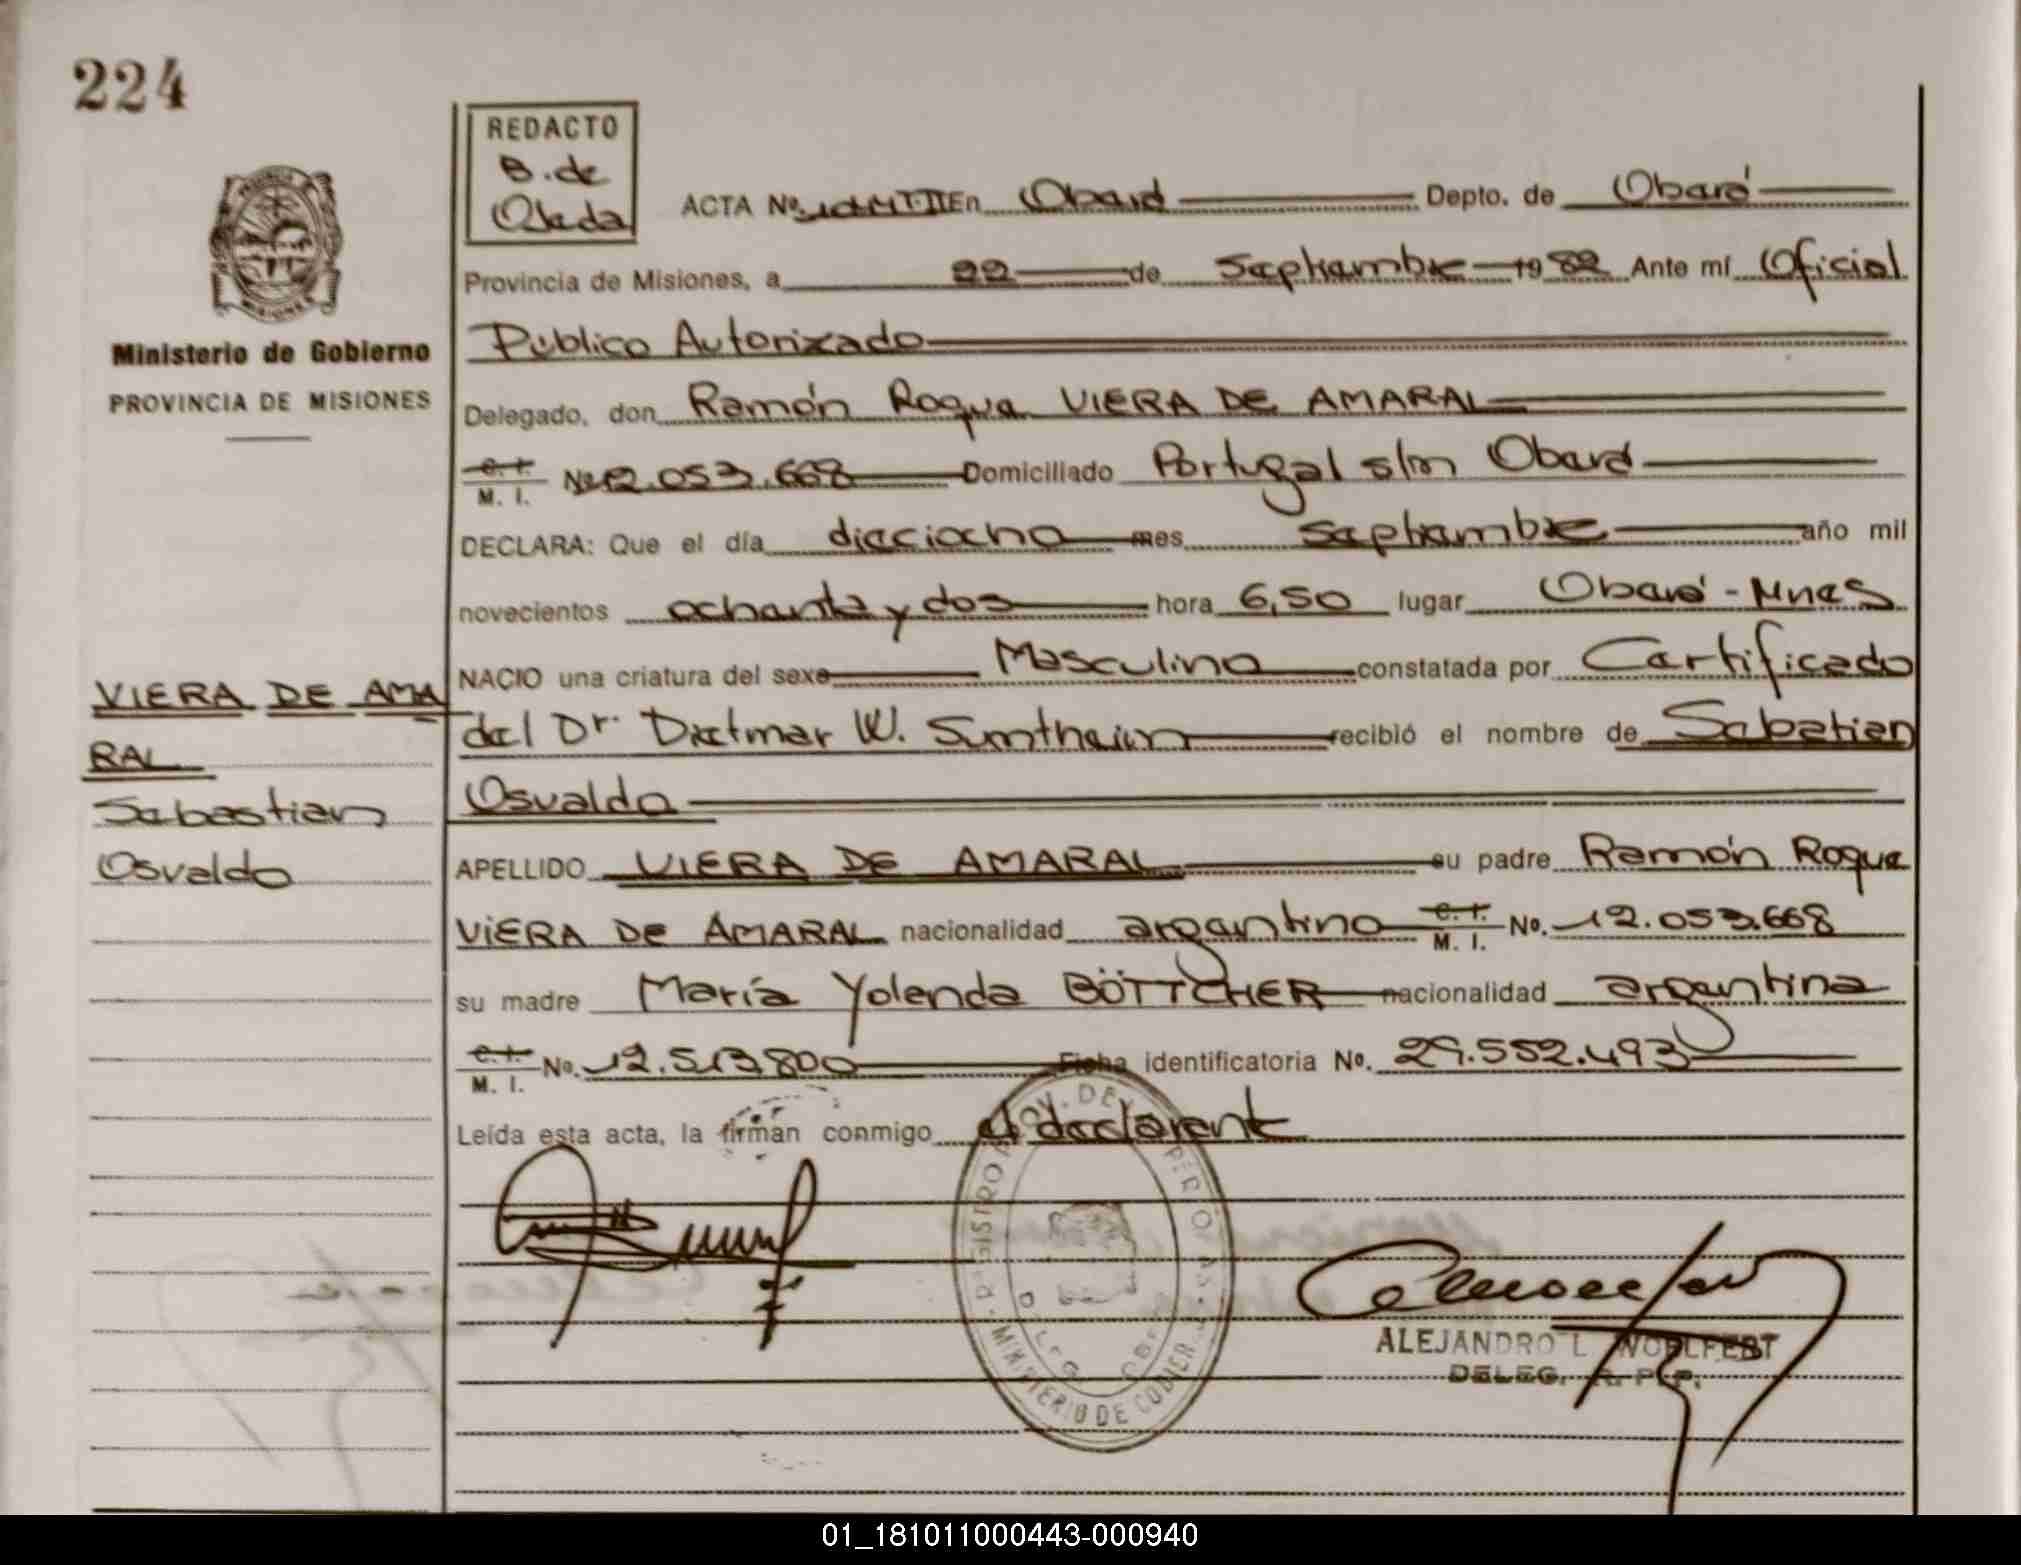 224
REDACTO
B. de
Ojeda
ACTA No. En Oberá Depto. de Oberá
Provincia de Misiones, a 22 de Septiembre 1982 Ante mí Oficial
Público Autorizado
Delegado, don Ramón Roque VIERA DE AMARAL
C. I.
M. I. No 12.053.668 Domiciliado Portugal s/n Oberá
DECLARA: Que el día dieciocho mes septiembre año mil
novecientos ochenta y dos hora 6,50 lugar Oberá - Mnes
NACIO una criatura del sexo Masculino constatada por Certificado
del Dr. Dietmar W. Sumtheim recibió el nombre de Sabatian
Osvaldo
APELLIDO VIERA DE AMARAL su padre Ramón Roque
VIERA DE AMARAL nacionalidad argentino C. I. M. I. No. 12.053.668
su madre María Yolenda BÖTTCHER nacionalidad argentina
C. I. M. I. No. 12.513.800 Ficha identificatoria No. 29.552.493
Leída esta acta, la firman conmigo el declarent
Ministerio de Gobierno
PROVINCIA DE MISIONES
VIERA DE AMA
RAL
Sebastian
Osvaldo
MINISTERIO DE GOBIER
ALEJANDRO L WOHLFERT
DELEG. R. P. P.
01_181011000443-000940